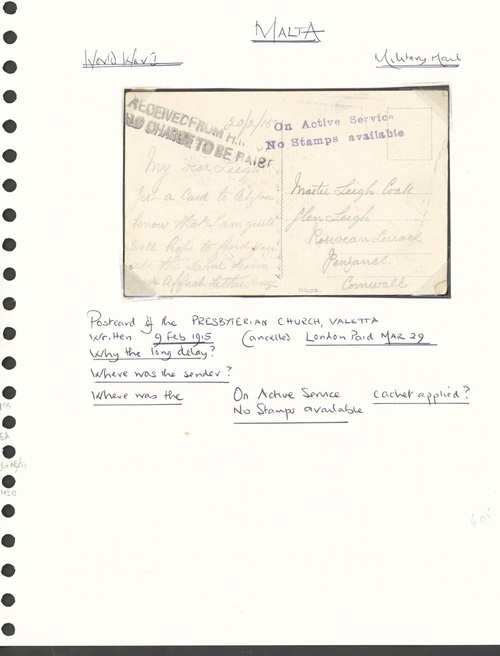 MALTA
World War I
Military Mail
RECEIVED FROM H.M.
NO CHARGE TO BE RAISED
On Active Service
No Stamps available
My dear Leigh
Just a Card to let you
know that I am quite
well hope to find you
all the same from
Master Leigh Coak
Glen Leigh
Rosevean Terrace
Penzance
Cornwall
Postcard of the PRESBYTERIAN CHURCH, VALETTA
Written 9 Feb 1915 Cancelled London Paid MAR 29
Why the long delay?
Where was the sender?
Where was the On Active Service cachet applied?
No Stamps available